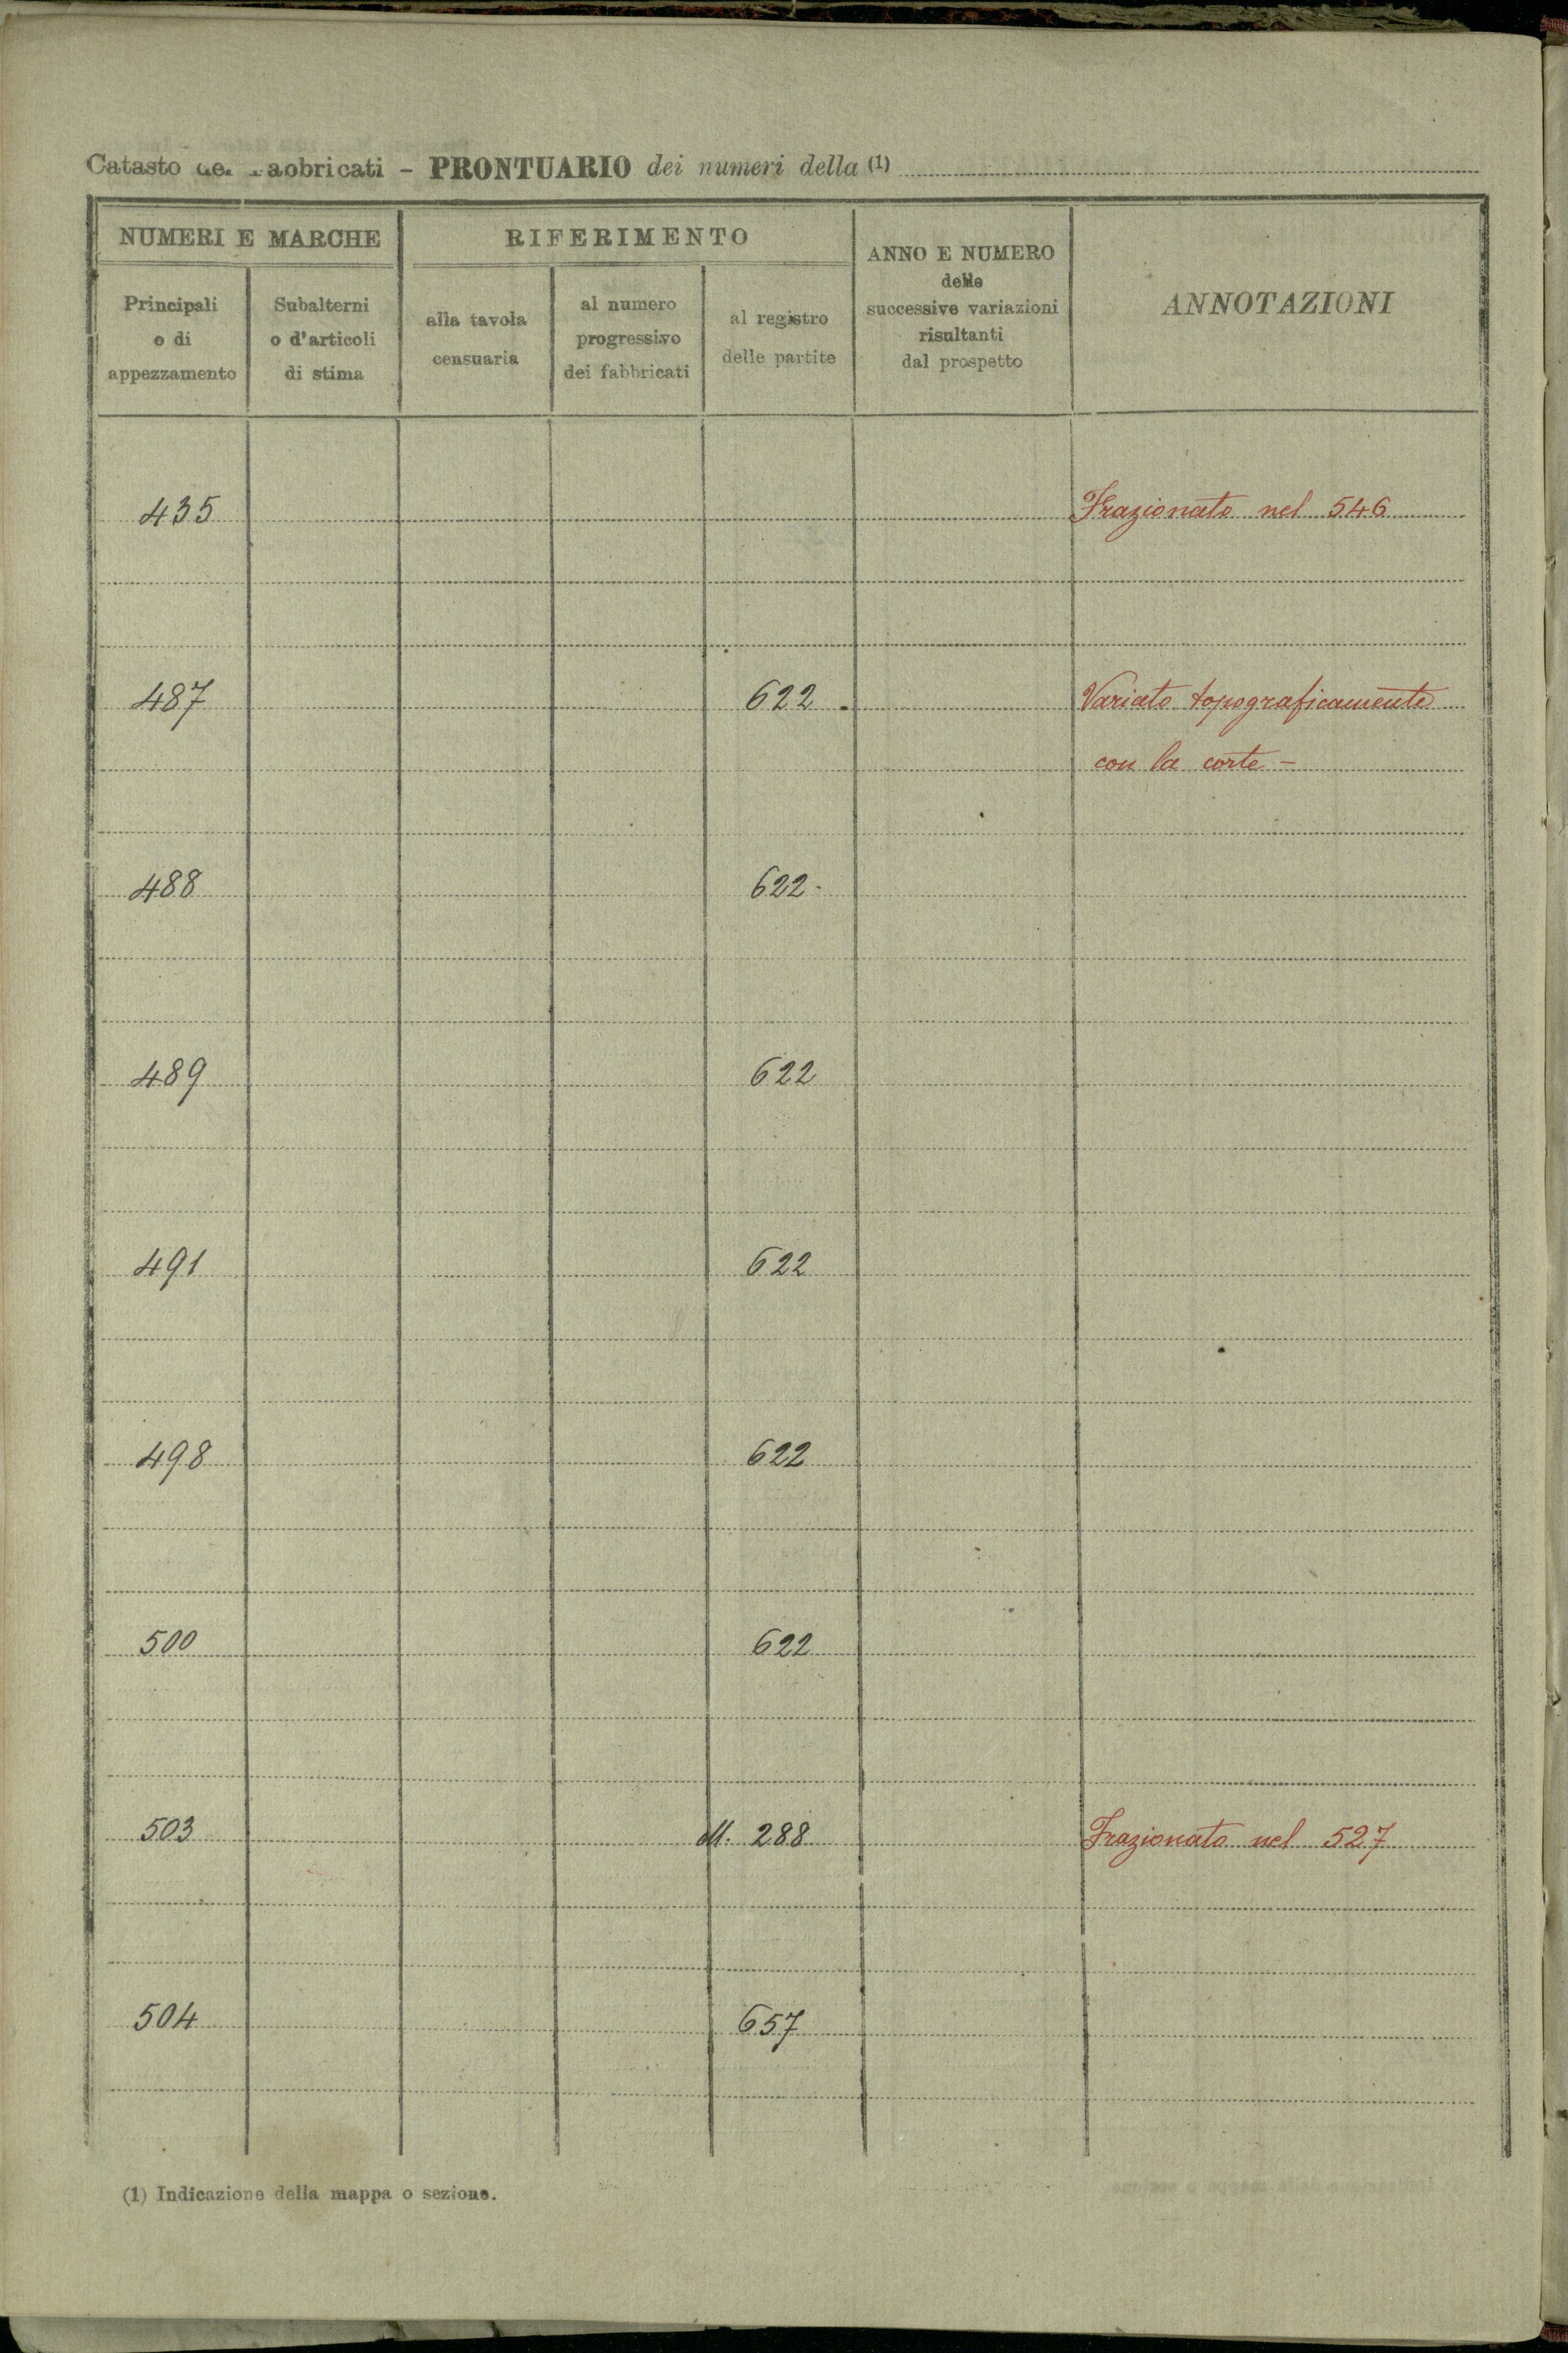 Catasto dei Fabbricati - PRONTUARIO dei numeri della (1)
NUMERI E MARCHE
RIFERIMENTO
ANNO E NUMERO
delle
successive variazioni
risultanti
dal prospetto
ANNOTAZIONI
Principali
o di
appezzamento
Subalterni
o d'articoli
di stima
alla tavola
censuaria
al numero
progressivo
dei fabbricati
al registro
delle partite
435 Frazionato nel 546
487 622 Variato topograficamente
con la corte -
488 622
489 622
491 622
498 622
500 622
503 M. 288 Frazionato nel 527
504 657
(1) Indicazione della mappa o sezione.